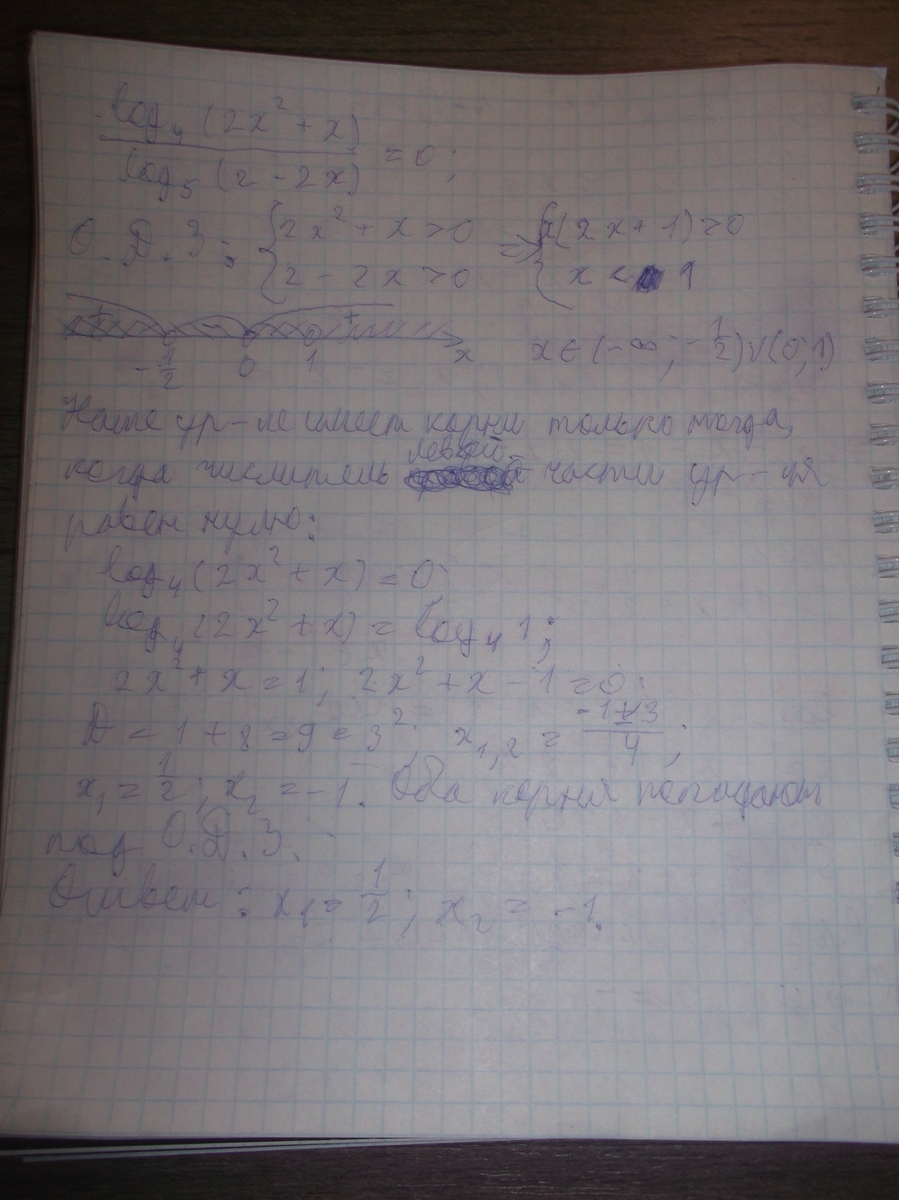 log₄(2x² + x) / log₅(2 - 2x) = 0;
О.Д.З.: { 2x² + x > 0 ; 2 - 2x > 0 => { x(2x + 1) > 0 ; x < 1
+ - + -1/2 0 1 x x ∈ (-∞; -1/2) ∪ (0; 1)
Наше ур-ие имеет корни только тогда,
когда числитель левой части ур-ия
равен нулю:
log₄(2x² + x) = 0
log₄(2x² + x) = log₄ 1;
2x² + x = 1; 2x² + x - 1 = 0.
D = 1 + 8 = 9 = 3²; x₁,₂ = (-1 ± 3)/4;
x₁ = 1/2; x₂ = -1. Оба корня попадают
под О.Д.З.
Ответ: x₁ = 1/2; x₂ = -1.